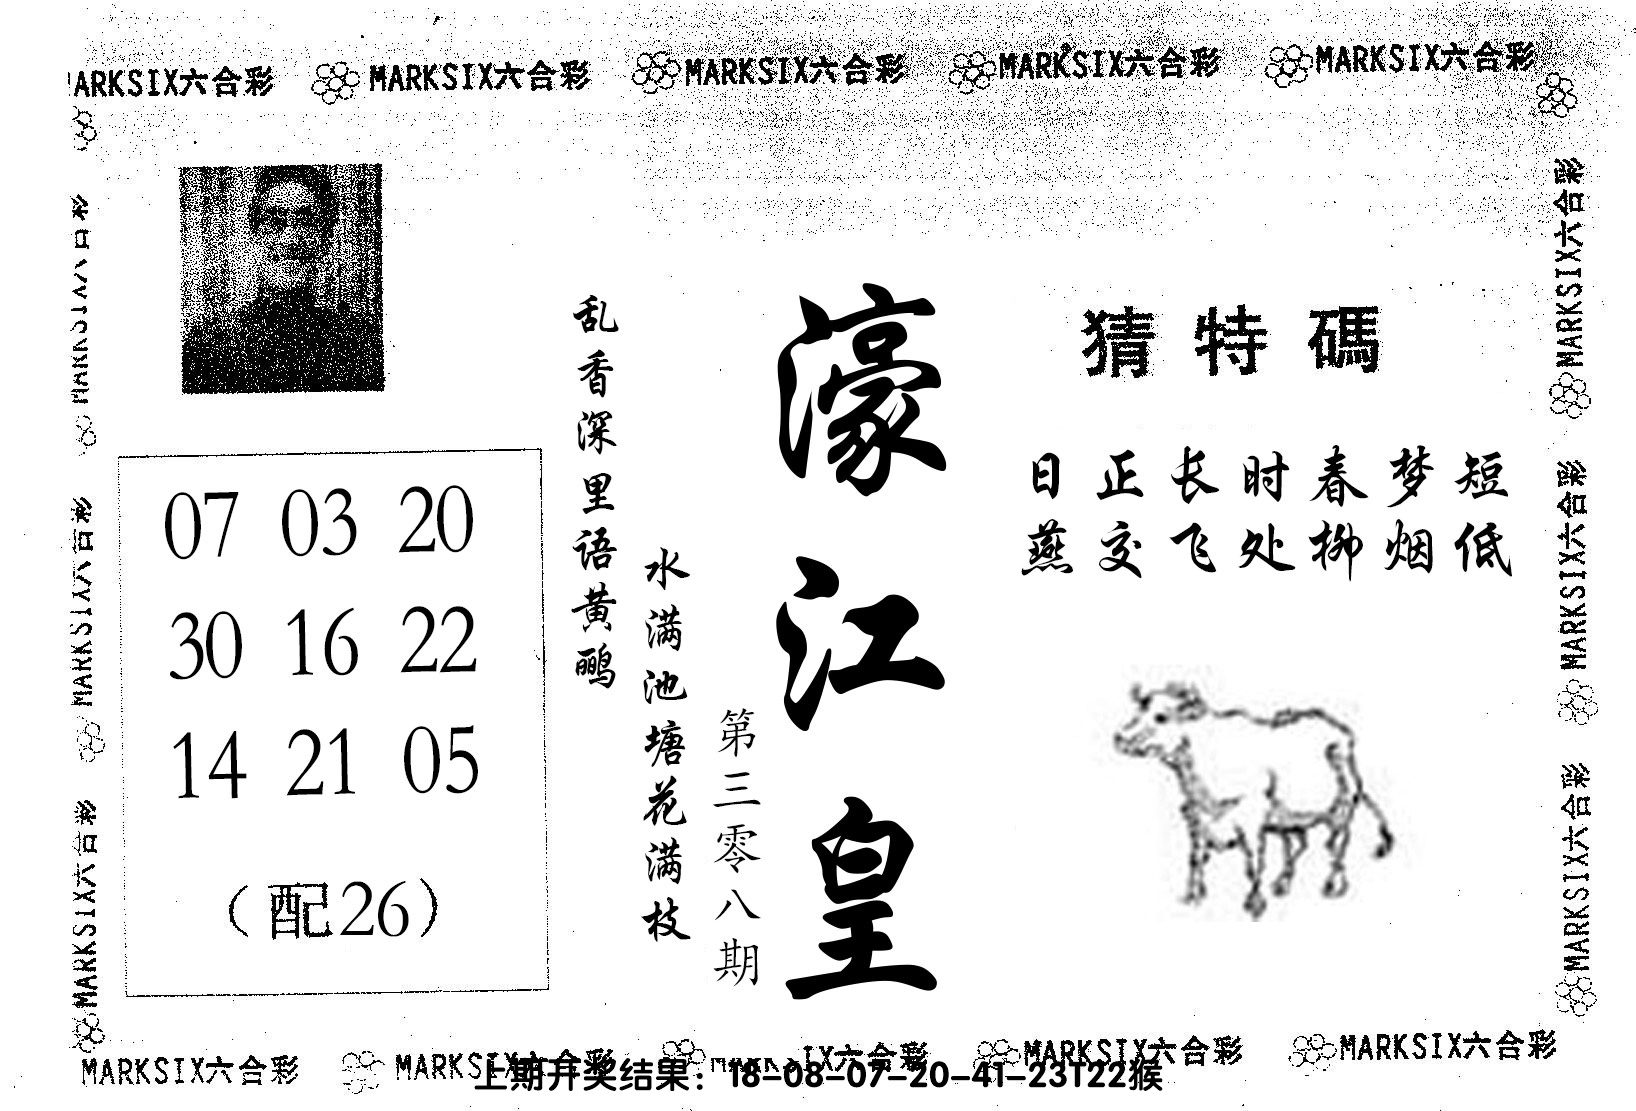 MARKSIX六合彩 MARKSIX六合彩 MARKSIX六合彩 MARKSIX六合彩 MARKSIX六合彩
猜特碼
日正长时春梦短
燕交飞处柳烟低
濠江皇
第三零八期
乱香深里语黄鹂
水满池塘花满枝
07 03 20
30 16 22
14 21 05
（配26）
MARKSIX六合彩
MARKSIX六合彩
MARKSIX六合彩
MARKSIX六合彩
MARKSIX六合彩
MARKSIX六合彩
MARKSIX六合彩 MARKSIX六合彩 MARKSIX六合彩 MARKSIX六合彩 MARKSIX六合彩
上期开奖结果：18-08-07-20-41-23T22猴